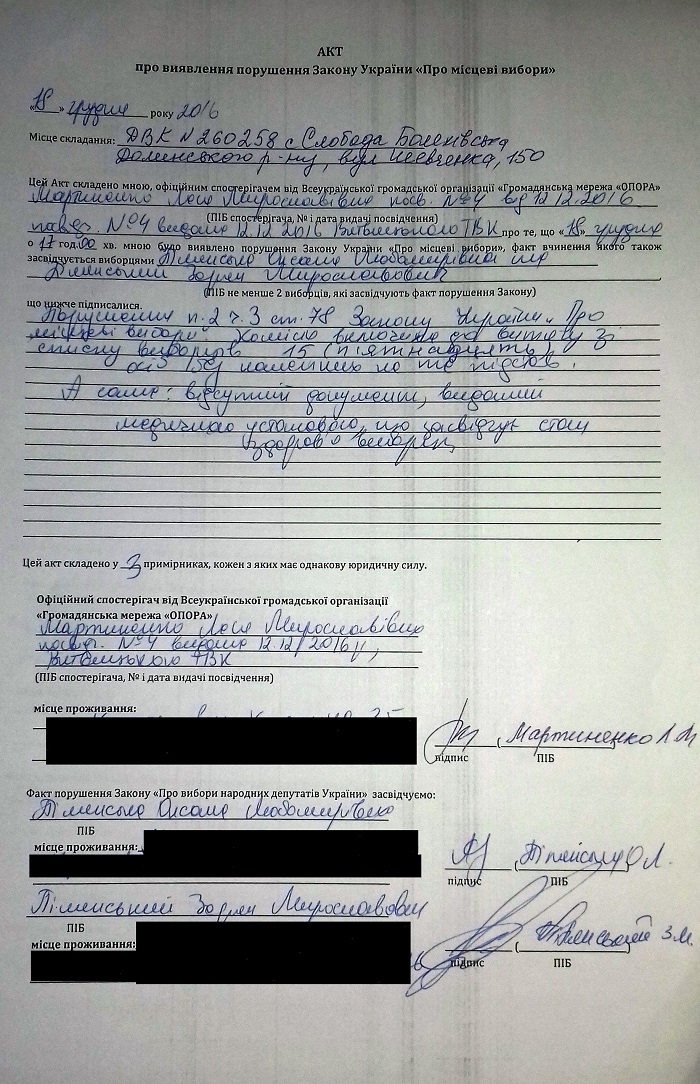 АКТ
про виявлення порушення Закону України «Про місцеві вибори»
«18» грудня року 2016
Місце складання: ДВК №260258 с Слобода
Долинського р-ну, вул Шевченка, 150
Цей Акт складено мною, офіційним спостерігачем від Всеукраїнської громадської організації «Громадянська мережа «ОПОРА»
Мартиненко Леся Мирославівна посв. №4 від 12.12.2016
(ПІБ спостерігача, № і дата видачі посвідчення)
посвідч. №4 видано 12.12 2016 Витвицькою ТВК про те, що «18» грудня
о 17 год 00 хв. мною було виявлено порушення Закону України «Про місцеві вибори», факт вчинення якого також
засвідчується виборцями Оксана Любомирівна та
Мирославович
(ПІБ не менше 2 виборців, які засвідчують факт порушення Закону)
що нижче підписалися.
Порушення п.2 ч.3 ст.78 Закону України „Про
місцеві вибори" Комісію включено до витягу зі
списку виборців 15 (п'ятнадцять
осіб) без на те підстав.
А саме: відсутній документ, виданий
медичною установою, що засвідчує стан
здоров'я виборця
Цей акт складено у 3 примірниках, кожен з яких має однакову юридичну силу.
Офіційний спостерігач від Всеукраїнської громадської організації
«Громадянська мережа «ОПОРА»
Мартиненко Леся Мирославівна
посвідч. №4 видано 12.12.2016 р,
Витвицькою ТВК
(ПІБ спостерігача, № і дата видачі посвідчення)
місце проживання:
підпис ( Мартиненко Л.М
ПІБ
Факт порушення Закону «Про вибори народних депутатів України» засвідчуємо:
Оксана Любомирівна
ПІБ
місце проживання:
підпис ( О.Л.
ПІБ
Мирославович
ПІБ
місце проживання:
підпис ( З.М.
ПІБ